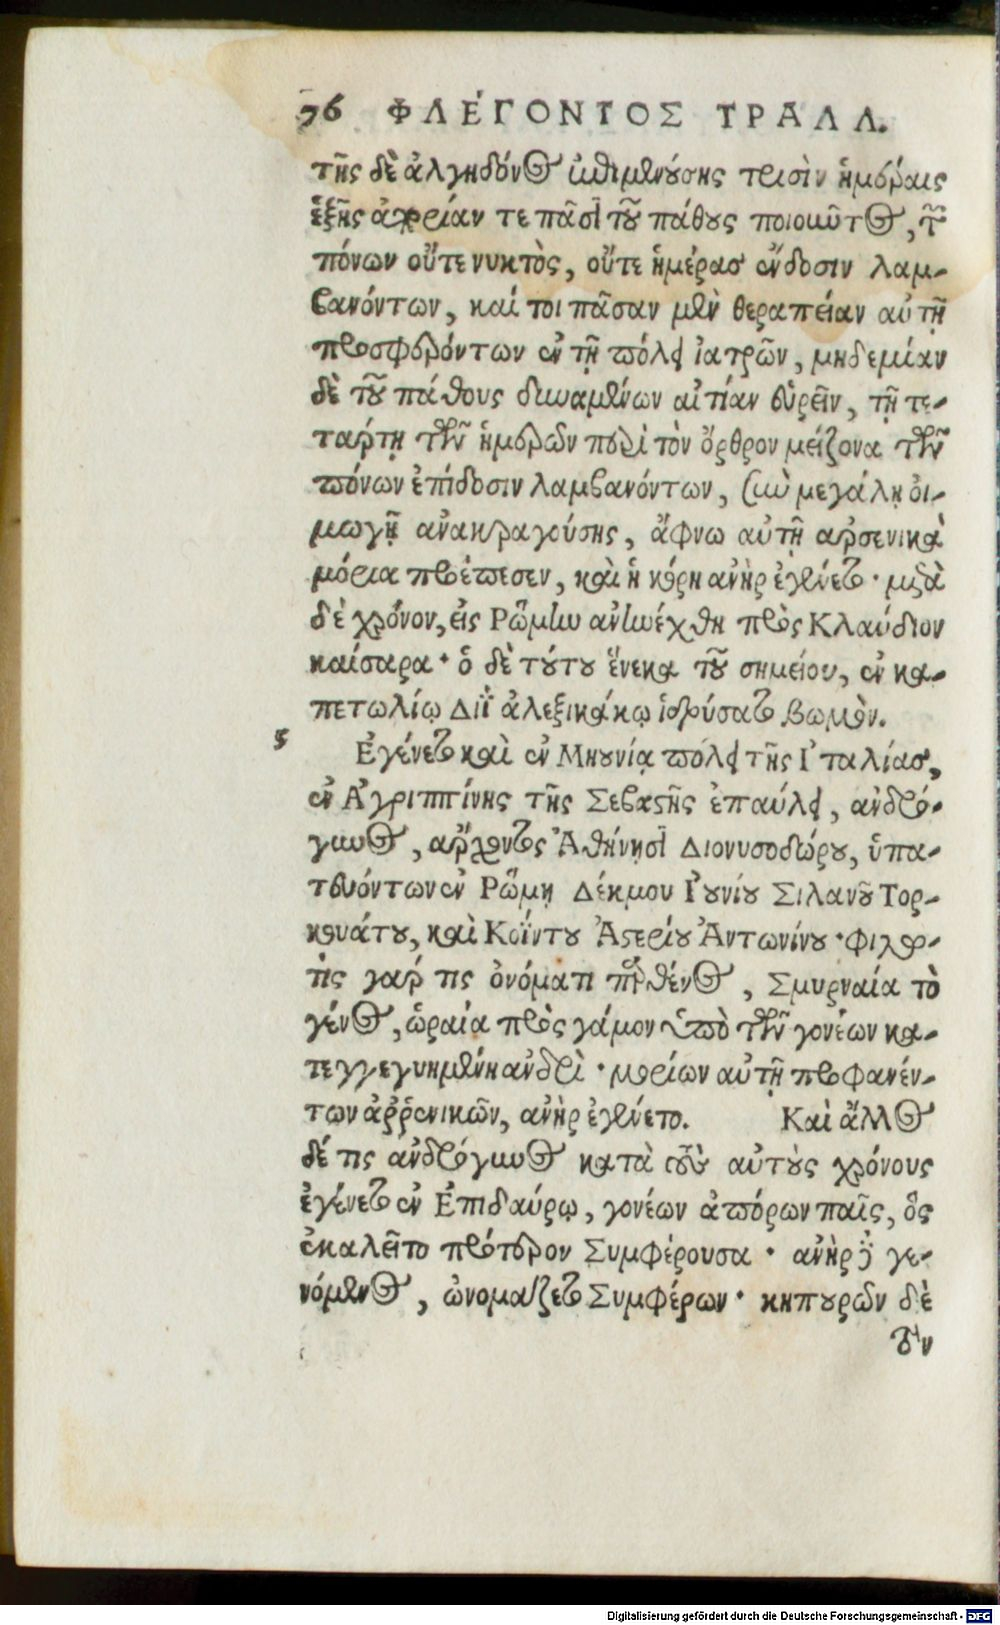 76 ΦΛΈΓΟΝΤΟΣ ΤΡΑΛΛ.
τῆς δὲ ἀλγηδόνος ἐπιμενούσης τρισὶν ἡμέραις
ἑξῆς ἀπορίαν τε πᾶσι τοῦ πάθους ποιοῦντος, τῶν
πόνων οὔτε νυκτὸς, οὔτε ἡμέρας ἔνδοσιν λαμ-
βανόντων, καί τοι πᾶσαν μὲν θεραπείαν αὐτῇ
προσφερόντων ἐν τῇ πόλει ἰατρῶν, μηδεμίαν
δὲ τοῦ πάθους δυναμένων αἰτίαν εὑρεῖν, τῇ τε-
τάρτῃ τῶν ἡμερῶν περὶ τὸν ὄρθρον μείζονα τῶν
πόνων ἐπίδοσιν λαμβανόντων, σὺν μεγάλῃ οἰ-
μωγῇ ἀνακραγούσης, ἄφνω αὐτῇ ἀρσενικὰ
μόρια προέπεσεν, καὶ ἡ κόρη ἀνὴρ ἐγένετο· μετὰ
δὲ χρόνον, εἰς Ρώμην ἀνηνέχθη πρὸς Κλαύδιον
καίσαρα· ὁ δὲ τούτου ἕνεκα τοῦ σημείου, ἐν κα-
πετωλίῳ Διῒ ἀλεξικάκῳ ἱδρύσατο βωμόν.
ϛ Ἐγένετο καὶ ἐν Μηουνίᾳ πόλει τῆς Ἰταλίας,
ἐν Ἀγριππίνης τῆς Σεβαστῆς ἐπαύλει, ἀνδρό-
γυνος, ἄρχοντος Ἀθήνησι Διονυσοδώρου, ὑπα-
τευόντων ἐν Ρώμῃ Δέκμου Ἰουνίου Σιλανοῦ Τορ-
κουάτου, καὶ Κοΐντου Ἀστερίου Ἀντωνίνου· Φιλω-
τὶς γάρ τις ὀνόματι παρθένος, Σμυρναία τὸ
γένος, ὡραία πρὸς γάμον ὑπὸ τῶν γονέων κα-
τεγγεγυημένη ἀνδρὶ· μορίων αὐτῇ προφανέν-
των ἀῤῥενικῶν, ἀνὴρ ἐγένετο. Καὶ ἄλλος
δέ τις ἀνδρόγυνος κατὰ τοὺς αὐτοὺς χρόνους
ἐγένετο ἐν Ἐπιδαύρῳ, γονέων ἀπόρων παῖς, ὃς
ἐκαλεῖτο πρότερον Συμφέρουσα· ἀνὴρ δὲ γε-
νόμενος, ὠνομάζετο Συμφέρων· κηπουρῶν δὲ
τὸν
Digitalisierung gefördert durch die Deutsche Forschungsgemeinschaft - DFG